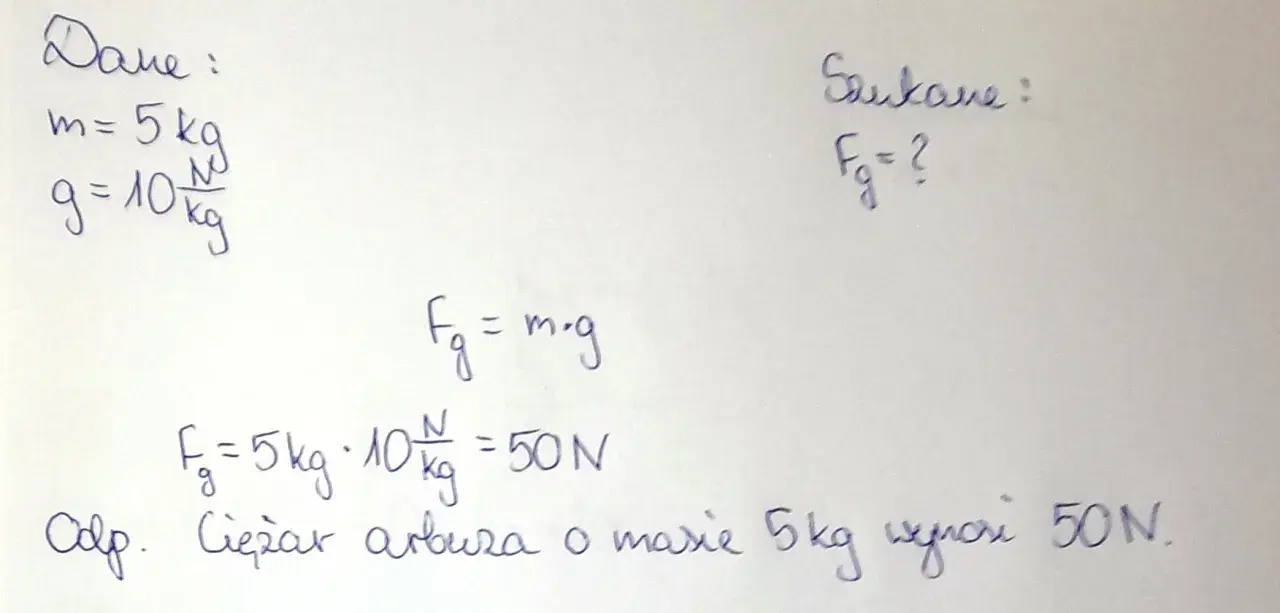 Dane:
m = 5 kg
g = 10 N/kg
Szukane:
Fg = ?
Fg = m·g
Fg = 5 kg · 10 N/kg = 50 N
Odp. Ciężar arbuza o masie 5 kg wynosi 50 N.